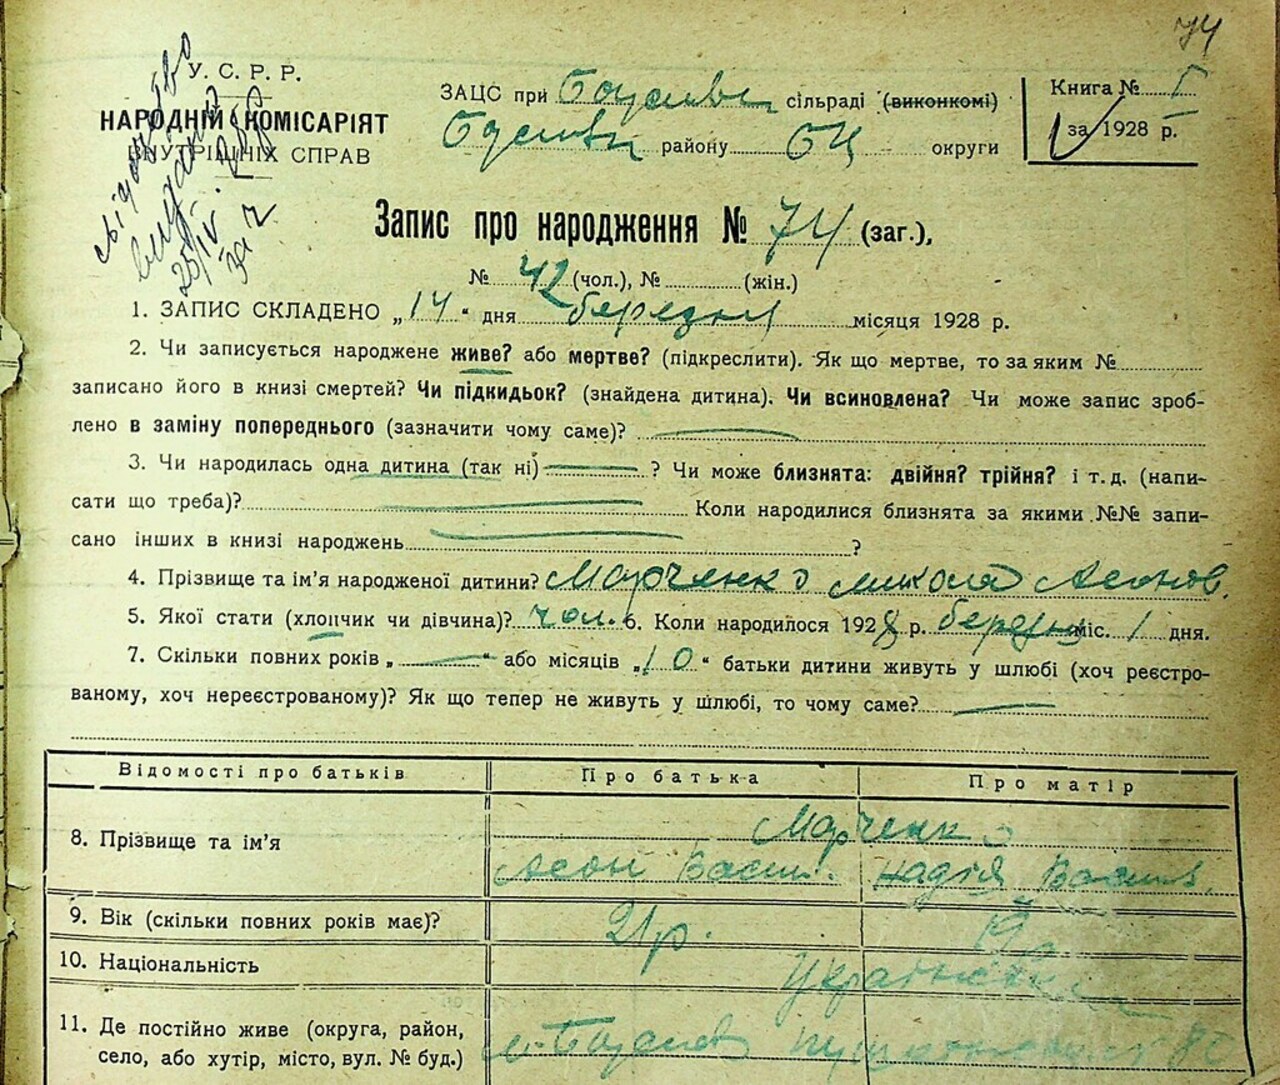 74
У. С. Р. Р.
НАРОДНІЙ КОМІСАРІЯТ
ВНУТРІШНІХ СПРАВ
25/IV
за №
ЗАЦС при сільраді (виконкомі)
району БЦ округи
Книга № I
за 1928 р.
Запис про народження № 74 (заг.),
№ 42 (чол.), № (жін.)
1. ЗАПИС СКЛАДЕНО „14“ дня березня місяця 1928 р.
2. Чи записується народжене живе? або мертве? (підкреслити). Як що мертве, то за яким №
записано його в книзі смертей? Чи підкидьок? (знайдена дитина). Чи всиновлена? Чи може запис зроб-
лено в заміну попереднього (зазначити чому саме)?
3. Чи народилась одна дитина (так ні) ? Чи може близнята: двійня? трійня? і т. д. (напи-
сати що треба)? Коли народилися близнята за якими №№ запи-
сано інших в книзі народжень ?
4. Прізвище та ім’я народженої дитини? Марченко Микола Леонов.
5. Якої стати (хлопчик чи дівчина)? чол. 6. Коли народилося 1928 р. березня міс. 1 дня.
7. Скільки повних років „ “ або місяців „10“ батьки дитини живуть у шлюбі (хоч реєстро-
ваному, хоч нереєстрованому)? Як що тепер не живуть у шлюбі, то чому саме?
Відомості про батьків Про батька Про матір
8. Прізвище та ім’я Марченко
Леон Васил. Надія Васил.
9. Вік (скільки повних років має)? 21 р.
10. Національність
11. Де постійно живе (округа, район,
село, або хутір, місто, вул. № буд.)